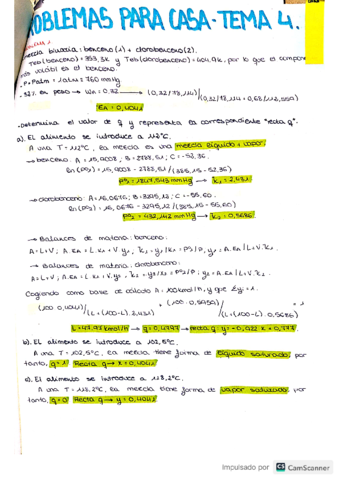 PROBLEMAS PARA CASA-TEMA 4.
mezcla binaria: benceno (1) + clorobenceno (2).
Teb (benceno) = 353,3K y Teb (clorobenceno) = 404,9K, por lo que el compon
más volátil es el benceno.
P = Patm = 1 atm = 760 mmHg
32% en peso → WA = 0,32 → (0,32/78,114)/(0,32/78,114 + 0,68/112,559)
ZA = 0,4041
-Determina el valor de q y representa la correspondiente "recta q".
a). El alimento se introduce a 112°C.
A una T = 112°C, la mezcla es una mezcla líquido + vapor:
→ benceno: A = 15,9008; B = 2788,51; C = -52,36
ln(PS1) = 15,9008 - 2788,51/(385,15 - 52,36)
PS1 = 1847,543 mmHg → K1 = 2,431
→ clorobenceno: A = 16,0676; B = 3295,12; C = -55,60
ln(PS2) = 16,0676 - 3295,12/(385,15 - 55,60)
PS2 = 432,142 mmHg → K2 = 0,5686
→ Balances de materia: benceno
→ Balances de materia: clorobenceno
Cogiendo como base de cálculo A = 100 kmol/h, y que Σyi = 1.
L = 47,97 kmol/h → q = 0,4797 → recta q: y = -0,922 x + 0,777
b). El alimento se introduce a 102,5°C.
A una T = 102,5°C, la mezcla tiene forma de líquido saturado, por
tanto, q = 1 Recta q → x = 0,4041
c). El alimento se introduce a 118,2°C.
A una T = 118,2°C, la mezcla tiene forma de vapor saturado, por
tanto, q = 0 Recta q → y = 0,4041
Impulsado por CS CamScanner